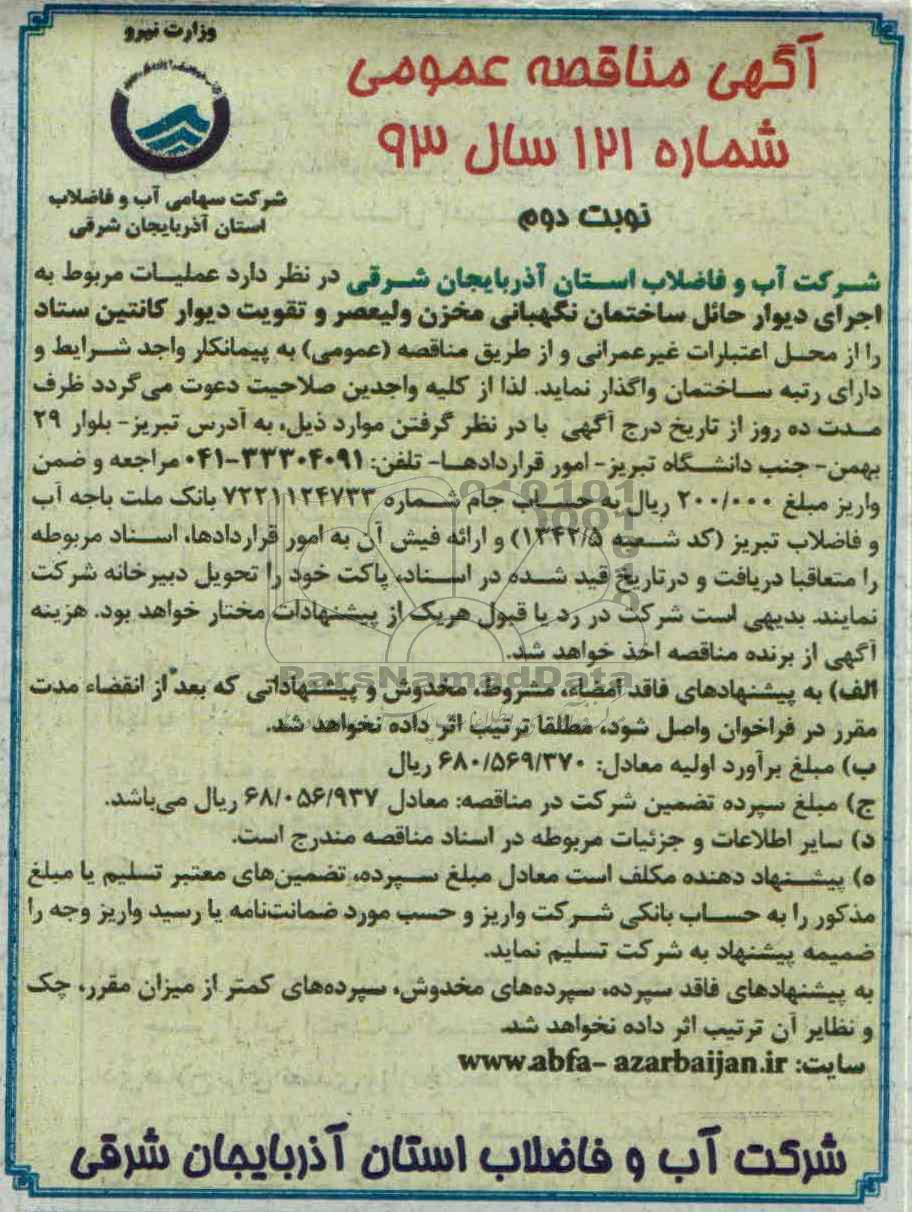 وزارت نیرو
شرکت سهامی آب و فاضلاب
استان آذربایجان شرقی
آگهی مناقصه عمومی
شماره ۱۲۱ سال ۹۳
نوبت دوم
شرکت آب و فاضلاب استان آذربایجان شرقی در نظر دارد عملیات مربوط به
اجرای دیوار حائل ساختمان نگهبانی مخزن ولیعصر و تقویت دیوار کانتین ستاد
را از محل اعتبارات غیرعمرانی و از طریق مناقصه (عمومی) به پیمانکار واجد شرایط و
دارای رتبه ساختمان واگذار نماید. لذا از کلیه واجدین صلاحیت دعوت می‌گردد ظرف
مدت ده روز از تاریخ درج آگهی با در نظر گرفتن موارد ذیل، به آدرس تبریز- بلوار ۲۹
بهمن- جنب دانشگاه تبریز- امور قراردادها- تلفن: ۳۳۳۰۴۰۹۱-۰۴۱ مراجعه و ضمن
واریز مبلغ ۲۰۰/۰۰۰ ریال به حساب جام شماره ۷۲۲۱۱۲۴۷۳۳ بانک ملت باجه آب
و فاضلاب تبریز (کد شعبه ۱۳۴۲/۵) و ارائه فیش آن به امور قراردادها، اسناد مربوطه
را متعاقبا دریافت و درتاریخ قید شده در اسناد، پاکت خود را تحویل دبیرخانه شرکت
نمایند. بدیهی است شرکت در رد یا قبول هریک از پیشنهادات مختار خواهد بود. هزینه
آگهی از برنده مناقصه اخذ خواهد شد.
الف) به پیشنهادهای فاقد امضاء، مشروط، مخدوش و پیشنهاداتی که بعد از انقضاء مدت
مقرر در فراخوان واصل شود، مطلقا ترتیب اثر داده نخواهد شد.
ب) مبلغ برآورد اولیه معادل: ۶۸۰/۵۶۹/۳۷۰ ریال
ج) مبلغ سپرده تضمین شرکت در مناقصه: معادل ۶۸/۰۵۶/۹۳۷ ریال می‌باشد.
د) سایر اطلاعات و جزئیات مربوطه در اسناد مناقصه مندرج است.
ه) پیشنهاد دهنده مکلف است معادل مبلغ سپرده، تضمین‌های معتبر تسلیم یا مبلغ
مذکور را به حساب بانکی شرکت واریز و حسب مورد ضمانت‌نامه یا رسید واریز وجه را
ضمیمه پیشنهاد به شرکت تسلیم نماید.
به پیشنهادهای فاقد سپرده، سپرده‌های مخدوش، سپرده‌های کمتر از میزان مقرر، چک
و نظایر آن ترتیب اثر داده نخواهد شد.
سایت: www.abfa- azarbaijan.ir
شرکت آب و فاضلاب استان آذربایجان شرقی
ParsNamadData